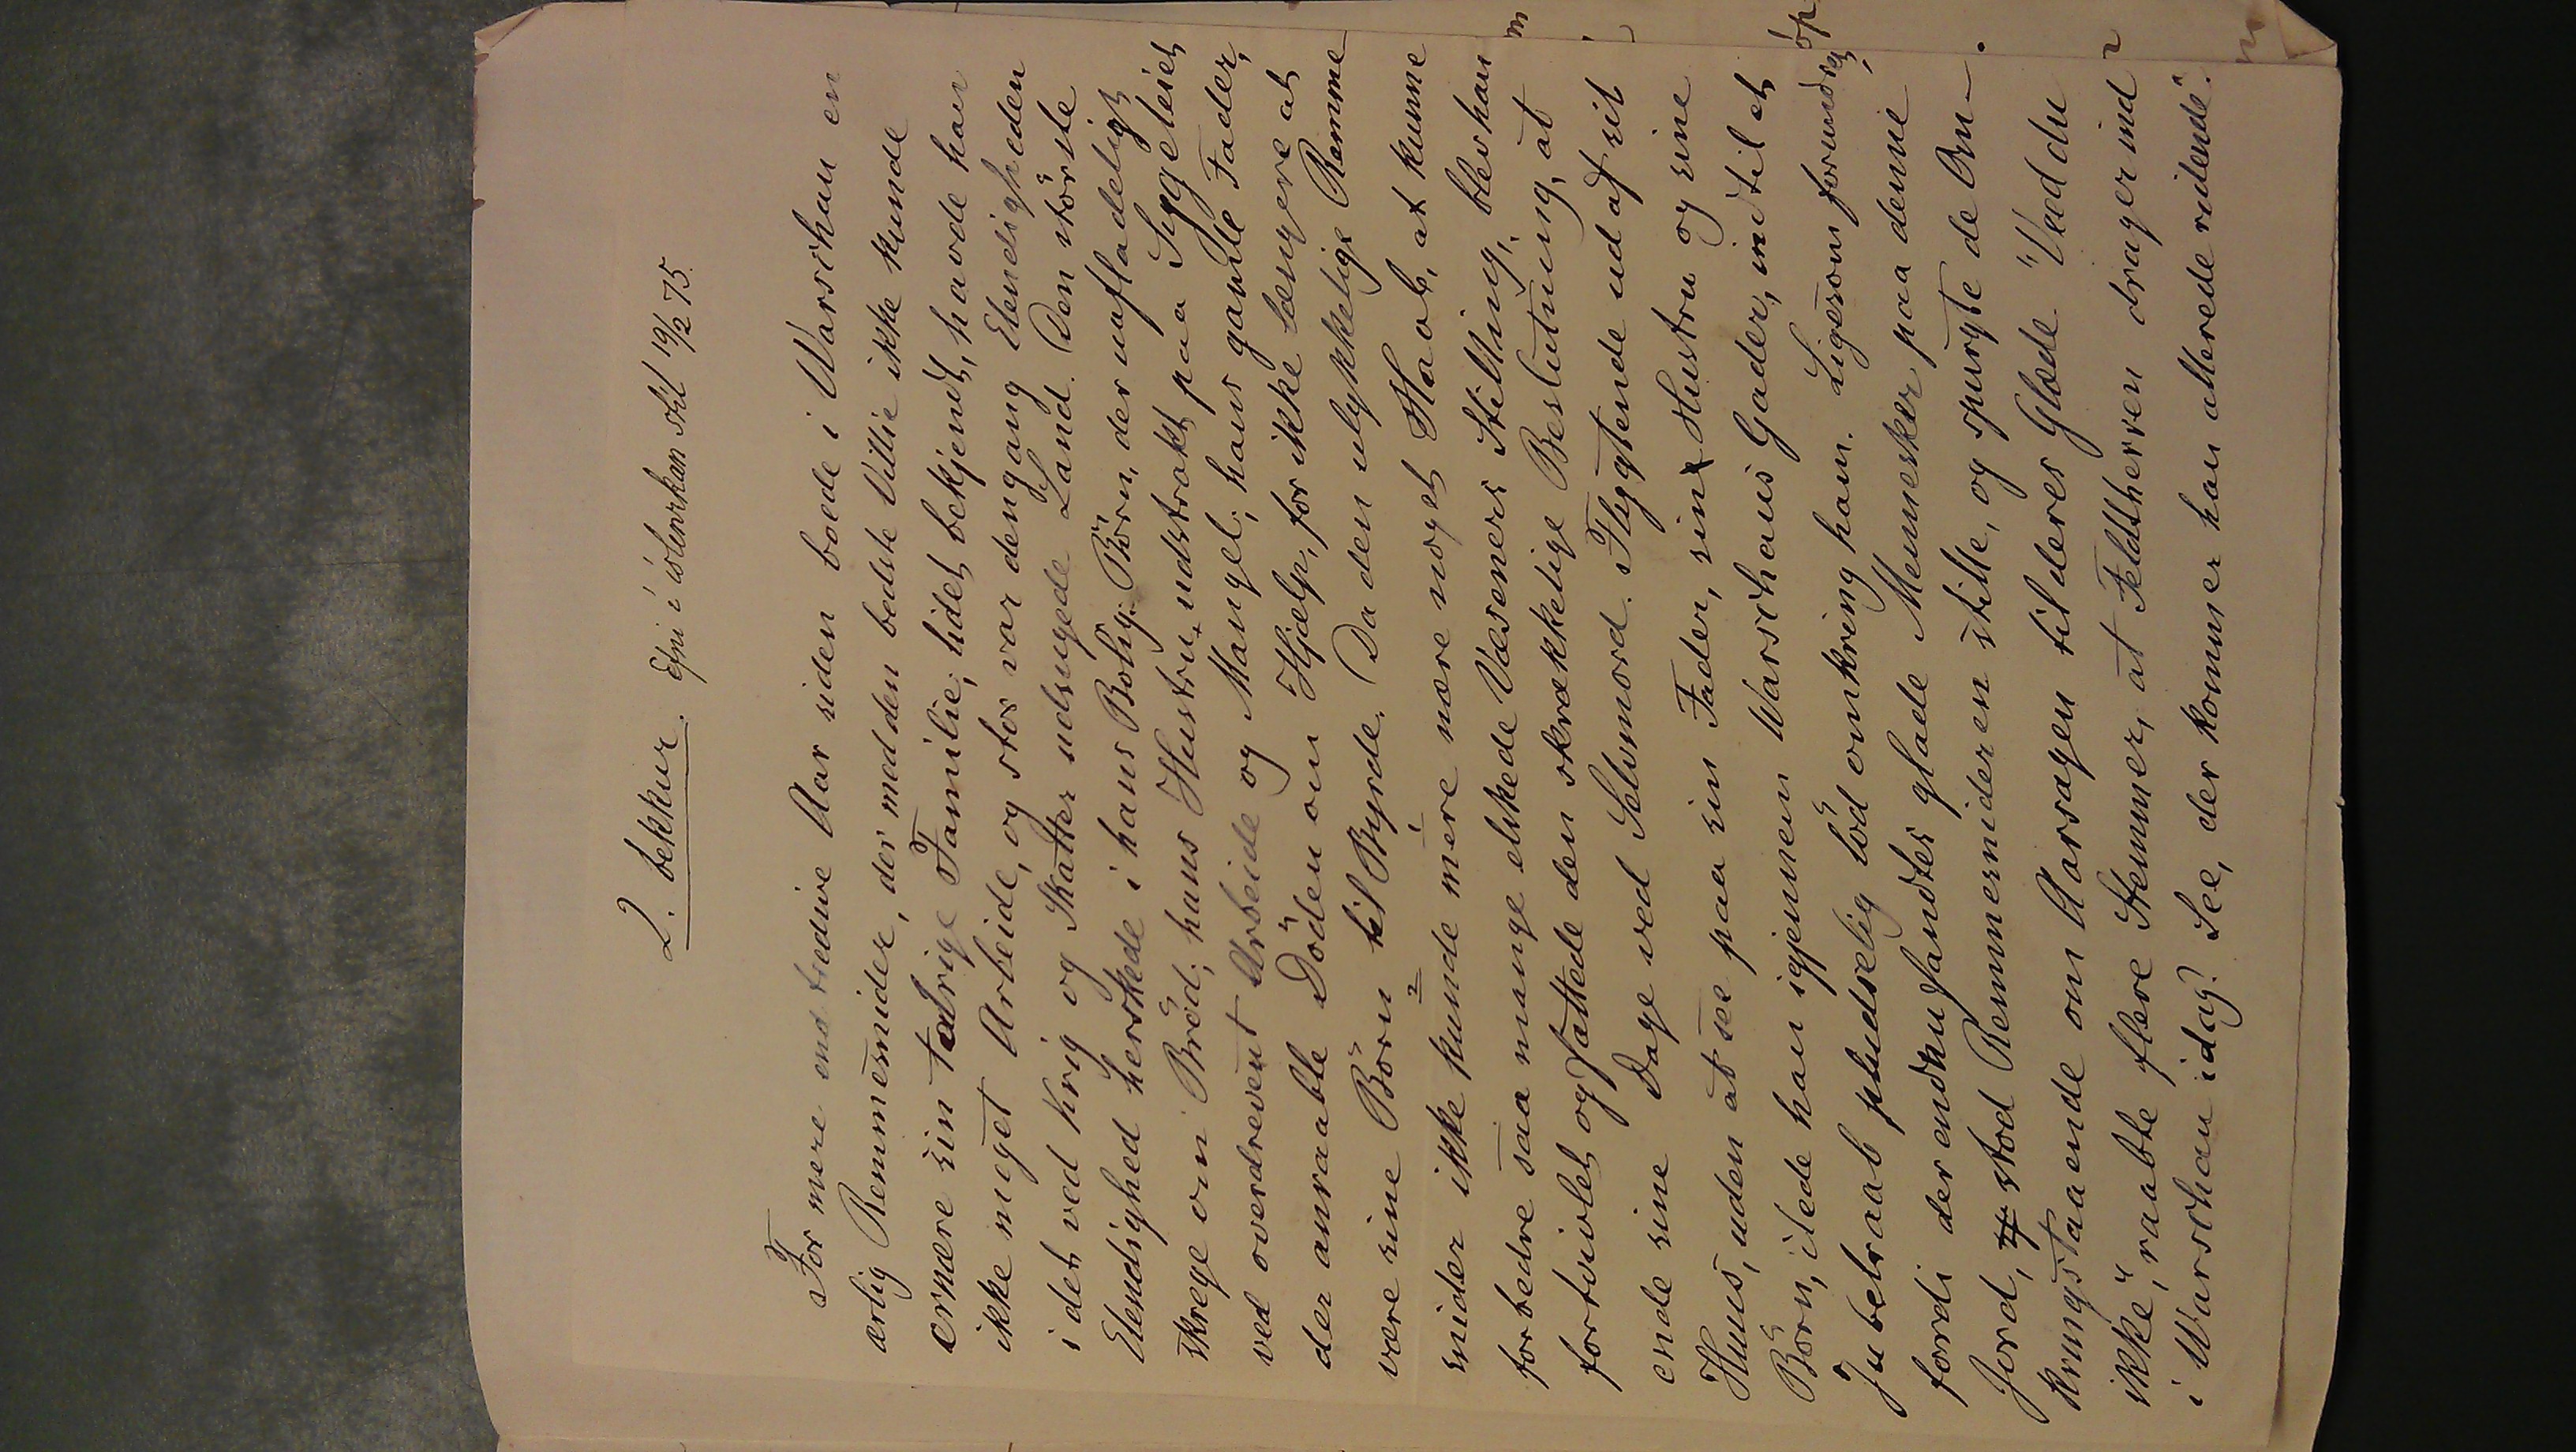 2. bekkur. Efni í íslenzkan stíl 19/2 75.
For mere end tredive Aar siden boede i Warschau en
ærlig Remmesmider, der med den bedste Villie ikke kunde
ernære sin talrige Familie; lidet bekjendt, havde han
ikke meget Arbeide, og stor var dengang Elendigheden
i det ved Krig og Skatter udsugede Land. Den störste
Elendighed herskede i hans Bolig: Börn, der uafladeligt
skrege om Bröd; hans Hustru, udstrakt paa Sygeleiet
ved overdrevent Arbeide og Mangel; hans gamle Fader,
der anraabte Döden om Hjælp, for ikke længere at
være sine Börn til Byrde. Da den ulykkelige Remme
smider ikke kunde mere nære noget Haab, at kunne
forbedre saa mange elskede Væseners Stilling, blev han
fortvivlet og fattede den skrækkelige Beslutning, at
ende sine Dage ved Selvmord. Flygtende ud af sit
Huus, uden at see paa sin Fader, sin Hustru og sine
Börn, ilede han igjennem Warschaus Gader, indtil et
Jubelraab pludselig löd omkring ham. Ligesom forundret op
fordi der endnu fandtes glade Mennesker paa denne
Jord, stod Remmesmideren stille, og spurgte de Om-
kringstaaende om Aarsagen til deres Glæde "Veed du
ikke", raabte flere Stemmer, at Feldtherren drager ind
i Warschau idag? See, der kommer han allerede ridende".